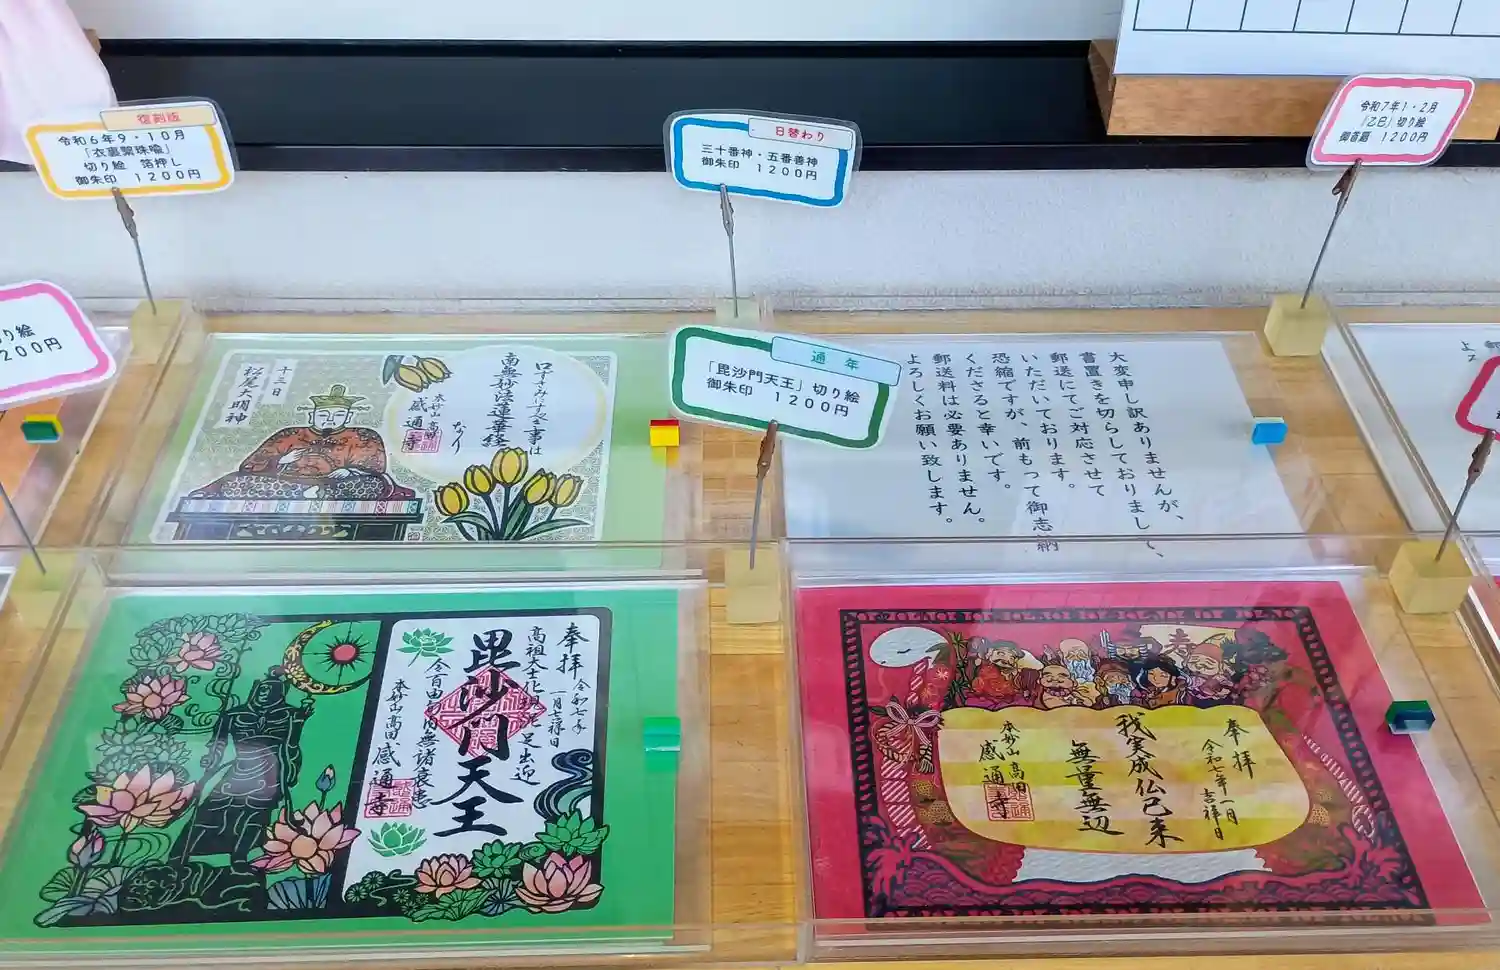 復刻版
令和6年9・10月
「衣裏繋珠喩」
切り絵 箔押し
御朱印 1200円
日替わり
三十番神・五番善神
御朱印 1200円
令和7年1・2月
「乙巳」切り絵
御首題 1200円
り絵
200円
通年
「毘沙門天王」切り絵
御朱印 1200円
口ずさみにすべき事は
南無妙法蓮華経
なり
本妙山
感通寺
十三日
松尾大明神
大変申し訳ありませんが、
書置きを切らしておりまして、
郵送にてご対応させて
いただいております。
恐縮ですが、前もって御志納
くださると幸いです。
郵送料は必要ありません。
よろしくお願い致します。
奉拝
令和七年
一月吉祥日
高祖大士化現
足出迎
毘沙門天王
令百由旬内無諸衰患
本妙山高田
感通寺
奉拝
令和七年一月
吉祥日
我実成仏已来
無量無辺
本妙山高田
感通寺
寿